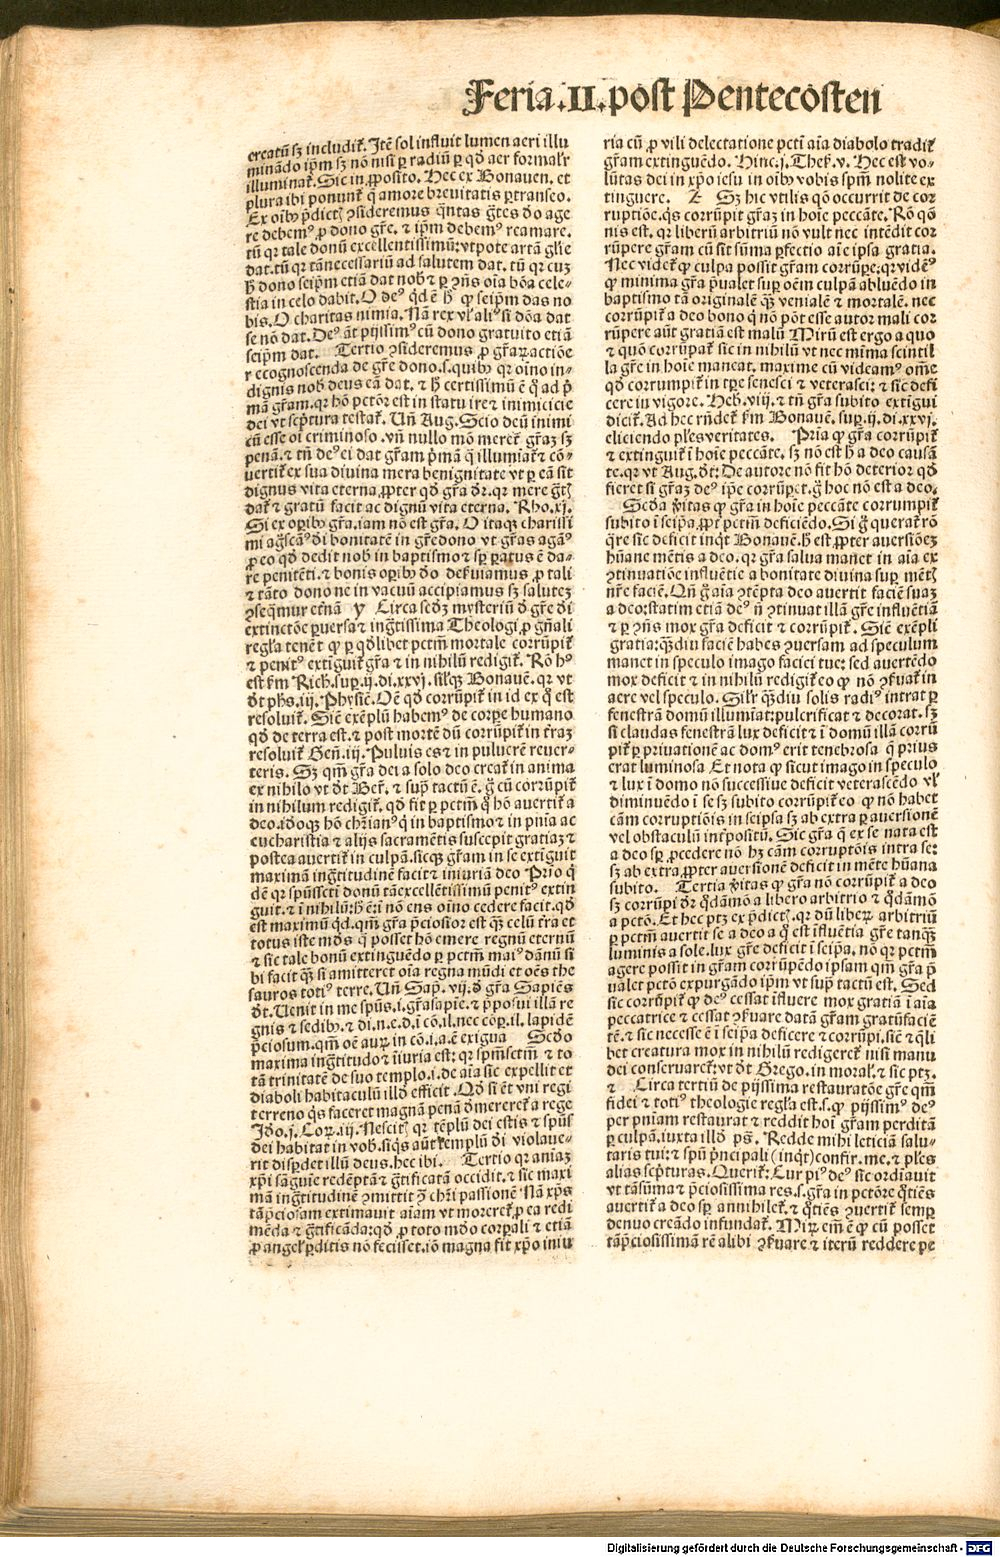 Feria.II.post Pentecosten
creatū sꝫ includiť. Itē sol influit lumen aeri illu
minādo ip̄m sꝫ nō nisi ꝑ radiū ꝑ qḋ aer formalr̄
illuminať. Sic in ꝓposito. Hec ex Bonauen. et
plura ibi ponunť q̄ amore breuitatis ꝑtranseo.
re debemꝰ ꝓ dono gr̄e. ⁊ ip̄m debemꝰ reamare.
tū qꝛ tale donū excellentissimū: vtpote artā gl̄ie
dat. tū qꝛ tā necessariū ad salutem dat. tū qꝛ cuꝫ
stia in celo dabit. O deꝰ qd ē hꝰ ꝙ seip̄m das no
bis. O charitas nimia. Nā rex vl̓ aliꝰ si dōa dat
se nō dat. Deꝰ āt pijssimꝰ cū dono gratuito etiā
seip̄m dat. Tertio ꝯsideremus ꝓ gr̄aꝝ actiōe
recognoscenda de gr̄e dono. s. quibꝰ qꝛ oīno in-
dignis nob̄ deus eā dat. ⁊ hꝰ certissimū ē q̄ ad p̄
mā gr̄am. qꝛ hō petōr est in statu ire ⁊ inimicicie
dei vt scp̄tura testať. Uñ Aug. Scio deū inimi
cū esse oī criminoso. vñ nullo mō merek̄ gr̄aꝫ sꝫ
penā. ⁊ tñ deꝰ ei dat gr̄am p̄mā q̄ illumiať ⁊ cō-
uertiť ex sua diuina mera benignitate vt ꝑ eā sit
dignus vita eterna, ꝓpter qḋ gr̄a dr̄. qꝛ mere
dať ⁊ gratū facit ac dignū vita eterna. Rho. xj.
Si ex oꝑibꝰ gr̄a. iam nō est gr̄a. O itaqꝫ charissi
ꝓ eo qḋ dedit nob̄ in baptismo ⁊ sp̄ paratus ē da-
⁊ tāto dono ne in vacuū accipiamus sꝫ saluteꝫ
ꝯseq̄mur etnā Circa sedꝫ mysteriū ḋ gr̄e di
extinctōe ꝑuersa ⁊ ingr̄tissima Theologi ꝓ gn̄ali
regl̄a tenēt ꝙ ꝑ qḋlibet pctm̄ mortale corrūpiť
⁊ penitꝰ extīguiť gr̄a ⁊ in nihilū redigiť. Rō hꝰ
est ẜm Rich. sup. ij. di. xxvj. sil̓qꝫ Bonauē. qꝛ vt
dt ph̄s. iij. Physic̄. Oē qḋ corrūpiť in id ex q̊ est
resoluiť. Sic̄ exēplū habemꝰ de corꝑe humano
qḋ de terra est. ⁊ post mortē dū corrūpiť in tr̄aꝫ
resoluiť Gen̄. iij. Puluis es ⁊ in puluerē reuer-
teris. Sꝫ qm̄ gr̄a dei a solo deo creať in anima
ex nihilo vt dt Ber̄. ⁊ sup̄ tactū ē. g̊ cū corrūpiť
in nihilum redigiť. qḋ fit ꝑ pctm̄ q̊ hō auertiť a
deo. idoqꝫ hō chr̄ianꝰ q̊ in baptismo ⁊ in pn̄ia ac
eucharistia ⁊ alijs sacramētis suscepit gratiaꝫ ⁊
postea auertiť in culpā. sicqꝫ gr̄am in se extīguit
maximā ingr̄titudinē facit ⁊ iniuriā deo Prīo q̊
dē qꝛ spūssctī donū tā excellētissimū penitꝰ extin
guit. ⁊ ī nihilū: hꝰ ē: ī nō ens oīno cedere facit. qḋ
est maximū qd. qm̄ gr̄a p̄ciosior est qꝫ celū tr̄a et
totus iste mḋs q̊ posset hō emere regnū eternū
⁊ sic tale bonū extinguēdo ꝑ pctm̄ maiꝰ dānū si
bi facit qꝫ si amitteret oīa regna mūdi et oēs the
sauros totiꝰ terre. Uñ Sap̄. vij. ḋ gr̄a Sapiēs
dt. Uenit in me spūs. i. gr̄a sapīe. ⁊ p̄posui illā re
gnis ⁊ sedibꝰ. ⁊ di. n. e. d. ī cō. il. nec cōꝑ. il. lapidē
p̄ciosum. qm̄ oē auꝝ in cō. i. a. ē exigua Sedo
maxima ingr̄titudo ⁊ iīuria est: qꝛ spm̄sctm̄ ⁊ to
tā trinitatē de suo templo. i. de aīa sic expellit et
diaboli habitaculū illḋ efficit. Qḋ si ēt vni regi
terreno qs faceret magnā penā ḋmereret̄ a rege
Iḋo. j. Coꝝ. iij. Nescitꝭ qꝛ tēplū dei estis ⁊ spūs
dei habitat in vob. siqs aūt templū di violaue-
rit disꝑdet illū deus. hec ibi. Tertio qꝛ aniaꝫ
xp̄i sāguīe redēptā ⁊ gr̄tificatā occidit. ⁊ sic maxi
mā ingr̄titudinē ꝯmittit ꝯ chr̄i passionē Nā xp̄s
tā p̄ciosam extimauit aīam vt morereť, ꝓ ea redi
mēda ⁊ gr̄tificāda: qḋ ꝓ toto mḋo corꝑali ⁊ etiā
ꝓ angel̓ ꝑditis nō fecisset. iō magna fit xp̄o iniu
ria cū ꝓ vili delectatione pcti aīa diabolo tradiť
gr̄am extinguēdo. Hinc. j. Thes̄. v. Hec est vo-
lūtas dei in xp̄o iesu in oībꝰ vobis spm̄ nolite ex
tinguere. Z Sꝫ hic vtilis qō occurrit de cor
ruptiōe. qs corrūpit gr̄aꝫ in hoīe peccāte. Rō qō
nis est. qꝛ liberū arbitriū nō vult nec intēdit cor
rūpere gr̄am cū sit sūma ꝑfectio aīe ipsa gratia.
Nec videť ꝙ culpa possit gr̄am corrūpe: qꝛ videmꝰ
ꝙ minima gr̄a p̄ualet suꝑ oēm culpā abluēdo in
baptismo tā originalē qꝫ venialē ⁊ mortalē. nec
corrūpiť a deo bono q̊ nō pōt esse autor mali cor
rūpere aūt gratiā est malū Mirū est ergo a quo
⁊ quō corrūpať sic in nihilū vt nec mīma scintil
la gr̄e in hoīe maneat. maxime cū videamꝰ om̄e
qḋ corrumpiť in tꝑe senesci ⁊ veterasci: ⁊ sic defi
cere in vigore. Heb. viij. ⁊ tñ gr̄a subito extīgui
diciť. Ad hec rn̄det ẜm Bonauē. suꝑ. ij. di. xxvj.
eliciendo pl̄es veritates. Pria ꝙ gr̄a corrūpiť
⁊ extinguiť ī hoīe peccāte. sꝫ nō est hꝰ a deo causā
te. qꝛ vt Aug. dt: De autore nō fit hō deterior qḋ
fieret si gr̄aꝫ deꝰ ip̄e corrūpet. g̊ hoc nō est a deo.
Seḋa vītas ꝙ gr̄a in hoīe peccāte corrumpiť
subito ī seip̄a, ꝓpter pctm̄ deficiēdo. Si g̊ querať rō
q̄re sic deficit inqt Bonauē. hꝰ est ꝓpter auersiōeꝫ
hūane mētis a deo. qꝛ gr̄a salua manet in aīa ex
ꝯtinuatiōe influētie a bonitate diuina suꝑ mētꝭ
nr̄e faciē. Qñ g̊ aīa ꝯtēpta deo auertit faciē suaꝫ
a deo: statim etiā deꝰ ñ ꝯtinuat illā gr̄e influētiā
⁊ ꝑ ꝯn̄s mox gr̄a deficit ⁊ corrūpiť. Sic̄ exēpli
gratia: qꝫdiu faciē habes ꝯuersam ad speculum
manet in speculo imago faciei tue: sed auertēdo
mox deficit ⁊ in nihilū redigiť eo ꝙ nō ꝯẜuať in
aere vel speculo. Silr̄ qꝫdiu solis radiꝰ intrat ꝑ
fenestrā domū illumīat: pulcrificat ⁊ decorat. sꝫ
si claudas fenestrā lux deficit ⁊ ī domū illā corrū
piť ꝑ priuationē ac domꝰ erit tenebrosa q̄ prius
erat luminosa Et nota ꝙ sicut imago in speculo
⁊ lux ī domo nō successiue deficit veterascēdo vl̓
diminuēdo ī se sꝫ subito corrūpiť eo ꝙ nō habet
cām corruptiōis in seipsa sꝫ ab extra ꝑ auersionē
vel obstaculū int̓positū. Sic gr̄a q̄ ex se nata est
a deo sp̄ ꝓcedere nō hꝫ cām corruptōis intra se:
sꝫ ab extra, ꝓpter auersionē deficit in mēte hūana
subito. Tertia vītas ꝙ gr̄a nō corrūpiť a deo
sꝫ corrūpi dr̄ qḋāmō a libero arbitrio ⁊ qḋāmō
a pctō. Et hec ptꝫ ex p̄dictꝭ. qꝛ dū liberū arbitriū
ꝑ pctm̄ auertit se a deo a q̊ est īfluētia gr̄e tanqꝫ
luminis a sole. lux gr̄e deficit ī seip̄a. nō qꝛ pctm̄
agere possit in gr̄am corrūpēdo ipsam qm̄ gr̄a p̄
ualet pctō expurgādo ip̄m vt sup̄ tactū est. Sed
sic corrūpiť ꝙ deꝰ cessat īfluere mox gratiā ī aīa
peccatrice ⁊ cessat ꝯẜuare datā gr̄am gratūfaciē
tē. ⁊ sic necesse ē ī seip̄a deficere ⁊ corrūpi. sic̄ ⁊ q̄li
bet creatura mox in nihilū redigereť nisi manu
dei conseruareť: vt dt Grego. in moral̓. ⁊ sic ptꝫ.
⁊ Circa tertiū de pijssima restauratōe gr̄e qm̄
fidei ⁊ totiꝰ theologie regl̄a est. s. ꝙ pijssimꝰ deꝰ
per pn̄iam restaurat ⁊ reddit hoī gr̄am perditā
ꝑ culpā. iuxta illḋ ps̄. Redde mihi leticiā salu-
taris tui: ⁊ spū p̄ncipali (inqt) confir. me. ⁊ pl̄es
alias scp̄turas. Queriť: Cur piꝰ deꝰ sic ordīauit
vt tā sūma ⁊ p̄ciosissima res. s. gr̄a in pctōre q̊tiēs
auertiť a deo sp̄ annihileť. ⁊ q̊tiēs ꝯuertiť semp̄
denuo creādo infundať. Miꝝ em̄ ē ꝙ cū posset
tā p̄ciosissimā rē alibi ꝯẜuare ⁊ iterū reddere pe
Digitalisierung gefördert durch die Deutsche Forschungsgemeinschaft - DFG